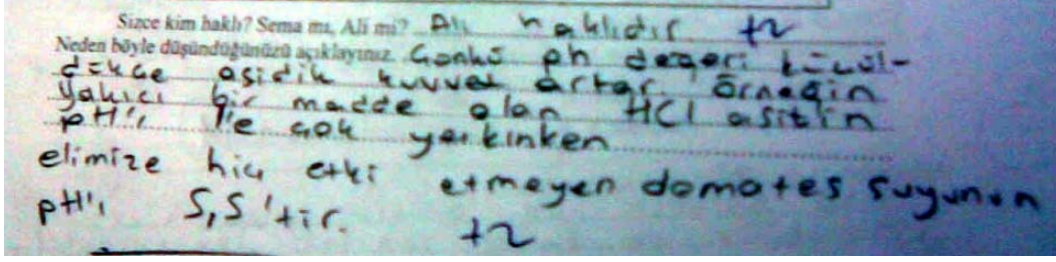 Sizce kim haklı? Sema mı, Ali mi? Ali haklıdır +2
Neden böyle düşündüğünüzü açıklayınız. Çünkü ph değeri küçül-
dükçe asidik kuvvet artar. Örneğin
Yakıcı bir madde olan HCl asitin
pH'ı 1'e çok yakınken
elimize hiç etki etmeyen domates suyunun
pH'ı 5,5'tir. +2